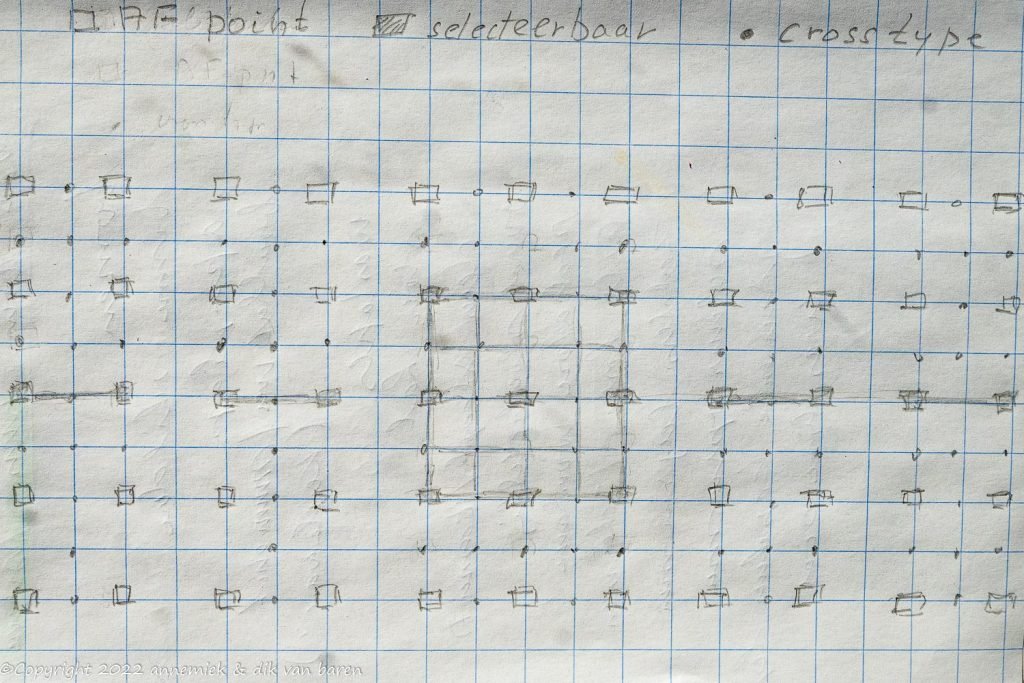 AF point selecteerbaar • cross type
AF pnt
©Copyright 2022 annemiek & dik van baren